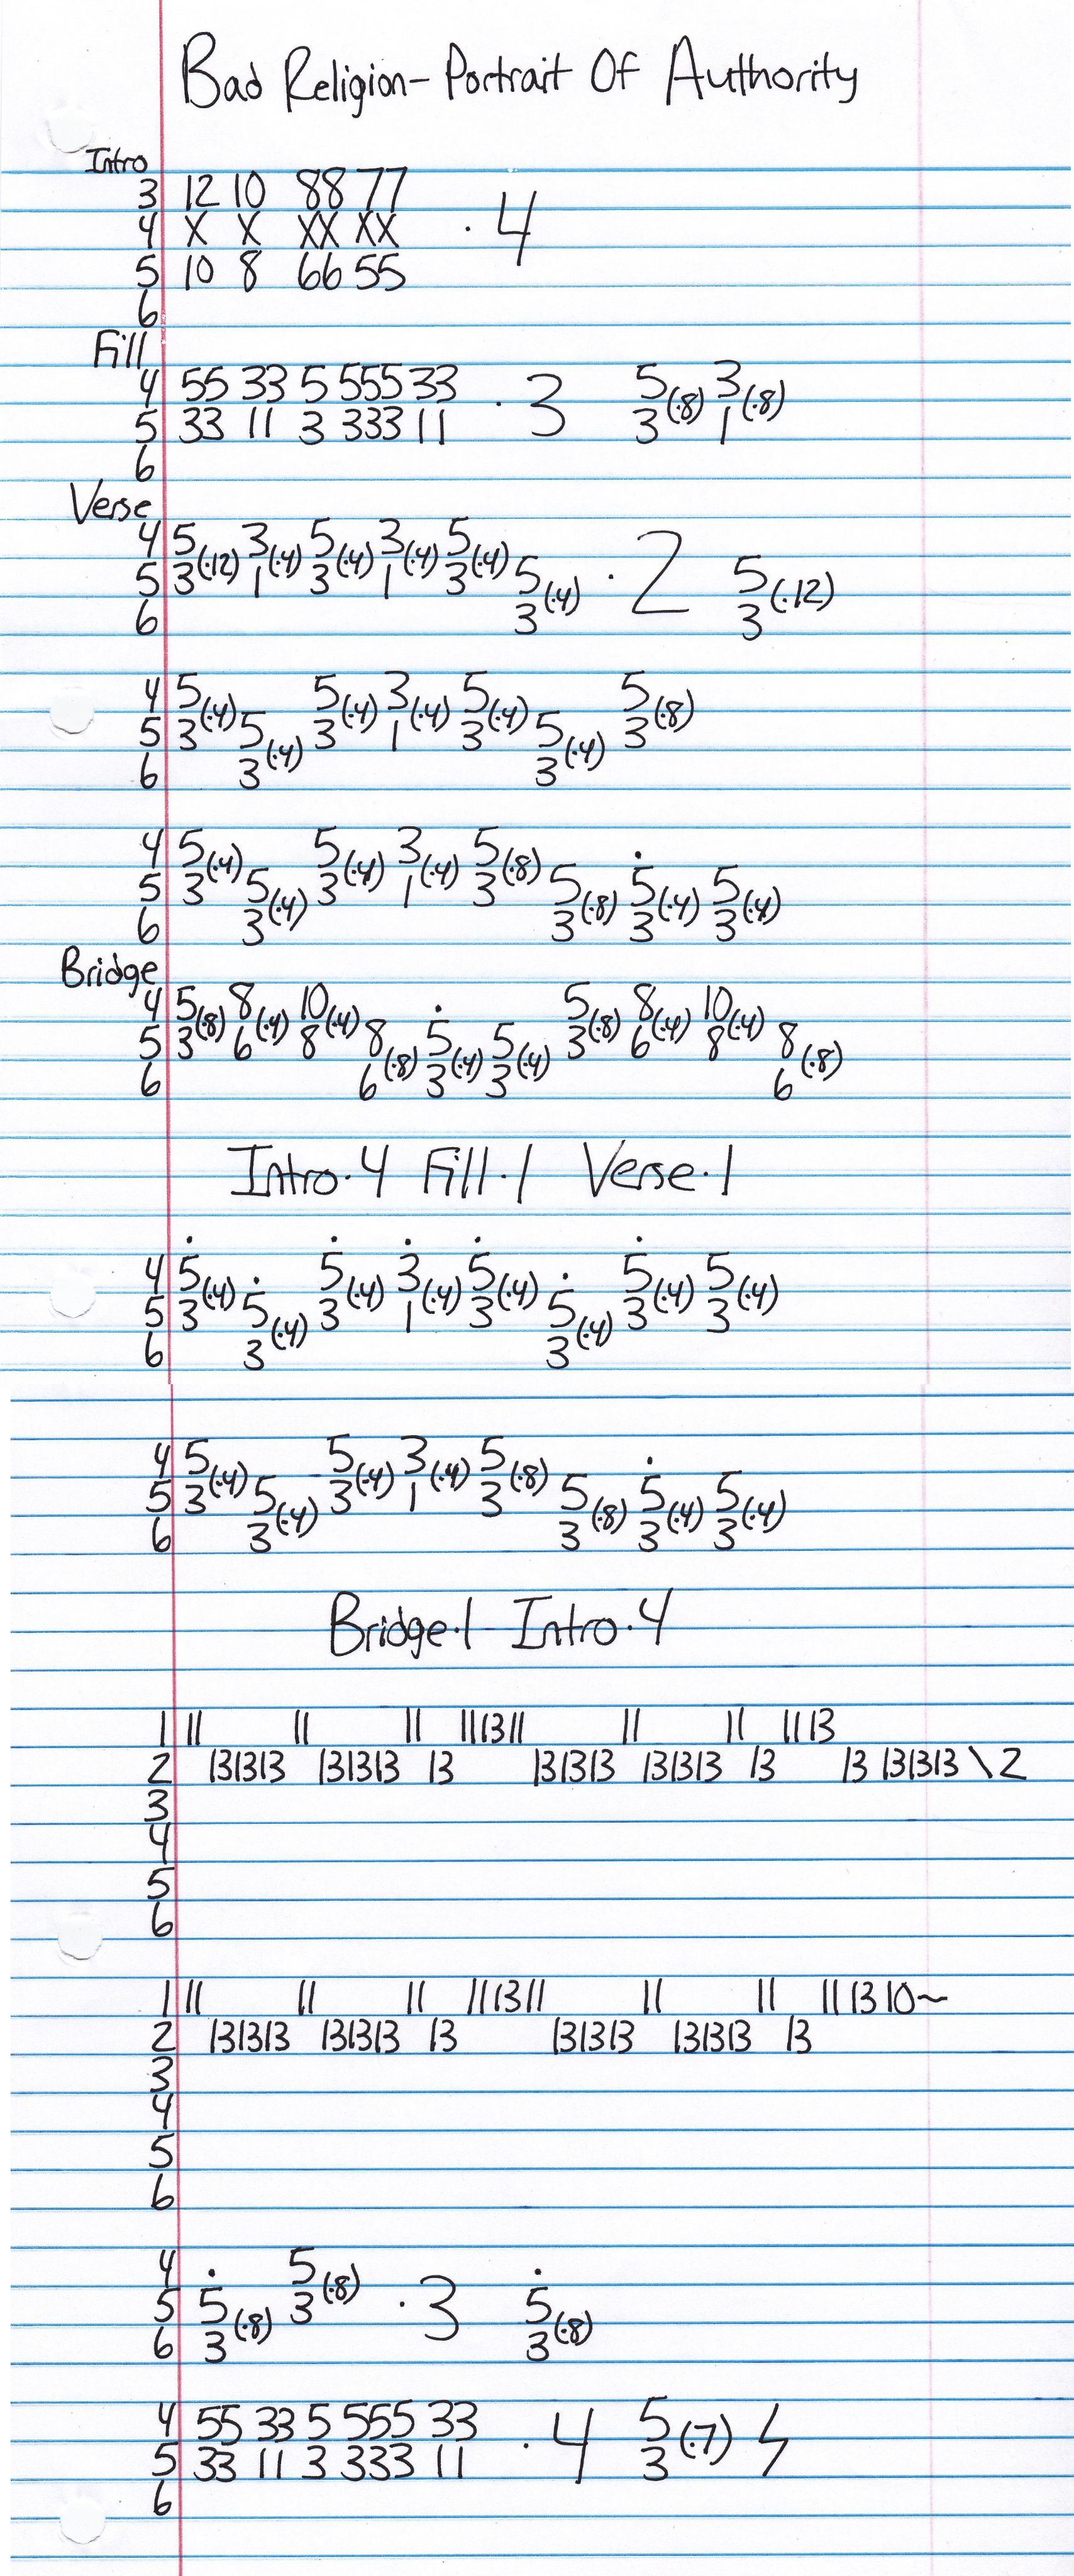 Bad Religion- Portrait Of Authority
Intro
3 12 10 88 77
4 X X XX XX · 4
5 10 8 66 55
6
Fill
4 55 33 5 555 33 · 3 5 (·8) 3 (·8)
5 33 11 3 333 11 3 1
6
Verse
4 5 (·12) 3 (·4) 5 (·4) 3 (·4) 5 (·4)
5 3 1 3 1 3 5 (·4) · 2 5 (·12)
6 3 3
4 5 (·4) 5 (·4) 3 (·4) 5 (·4) 5 (·8)
5 3 5 (·4) 3 1 3 5 (·4) 3
6 3 3
4 5 (·4) 5 (·4) 3 (·4) 5 (·8) ·
5 3 5 (·4) 3 1 3 5 (·8) 5 (·4) 5 (·4)
6 3 3 3 3
Bridge
4 5 (·8) 8 (·4) 10 (·4) · 5 (·8) 8 (·4) 10 (·4)
5 3 6 8 8 (·8) 5 (·4) 5 (·4) 3 6 8 8 (·8)
6 6 3 3 6
Intro·4 Fill·1 Verse·1
· · · · ·
4 5 (·4) · 5 (·4) 3 (·4) 5 (·4) · 5 (·4) 5 (·4)
5 3 5 (·4) 3 1 3 5 (·4) 3 3
6 3 3
4 5 (·4) 5 (·4) 3 (·4) 5 (·8) ·
5 3 5 (·4) 3 1 3 5 (·8) 5 (·4) 5 (·4)
6 3 3 3 3
Bridge·1 Intro·4
1 11 11 11 111311 11 11 1113
2 131313 131313 13 131313 131313 13 13 131313 \ 2
3
4
5
6
1 11 11 11 111311 11 11 11 13 10~
2 131313 131313 13 131313 131313 13
3
4
5
6
4 · 5 (·8) ·
5 5 (·8) 3 · 3 5 (·8)
6 3 3
4 55 33 5 555 33 · 4 5 (·7)
5 33 11 3 333 11 3
6